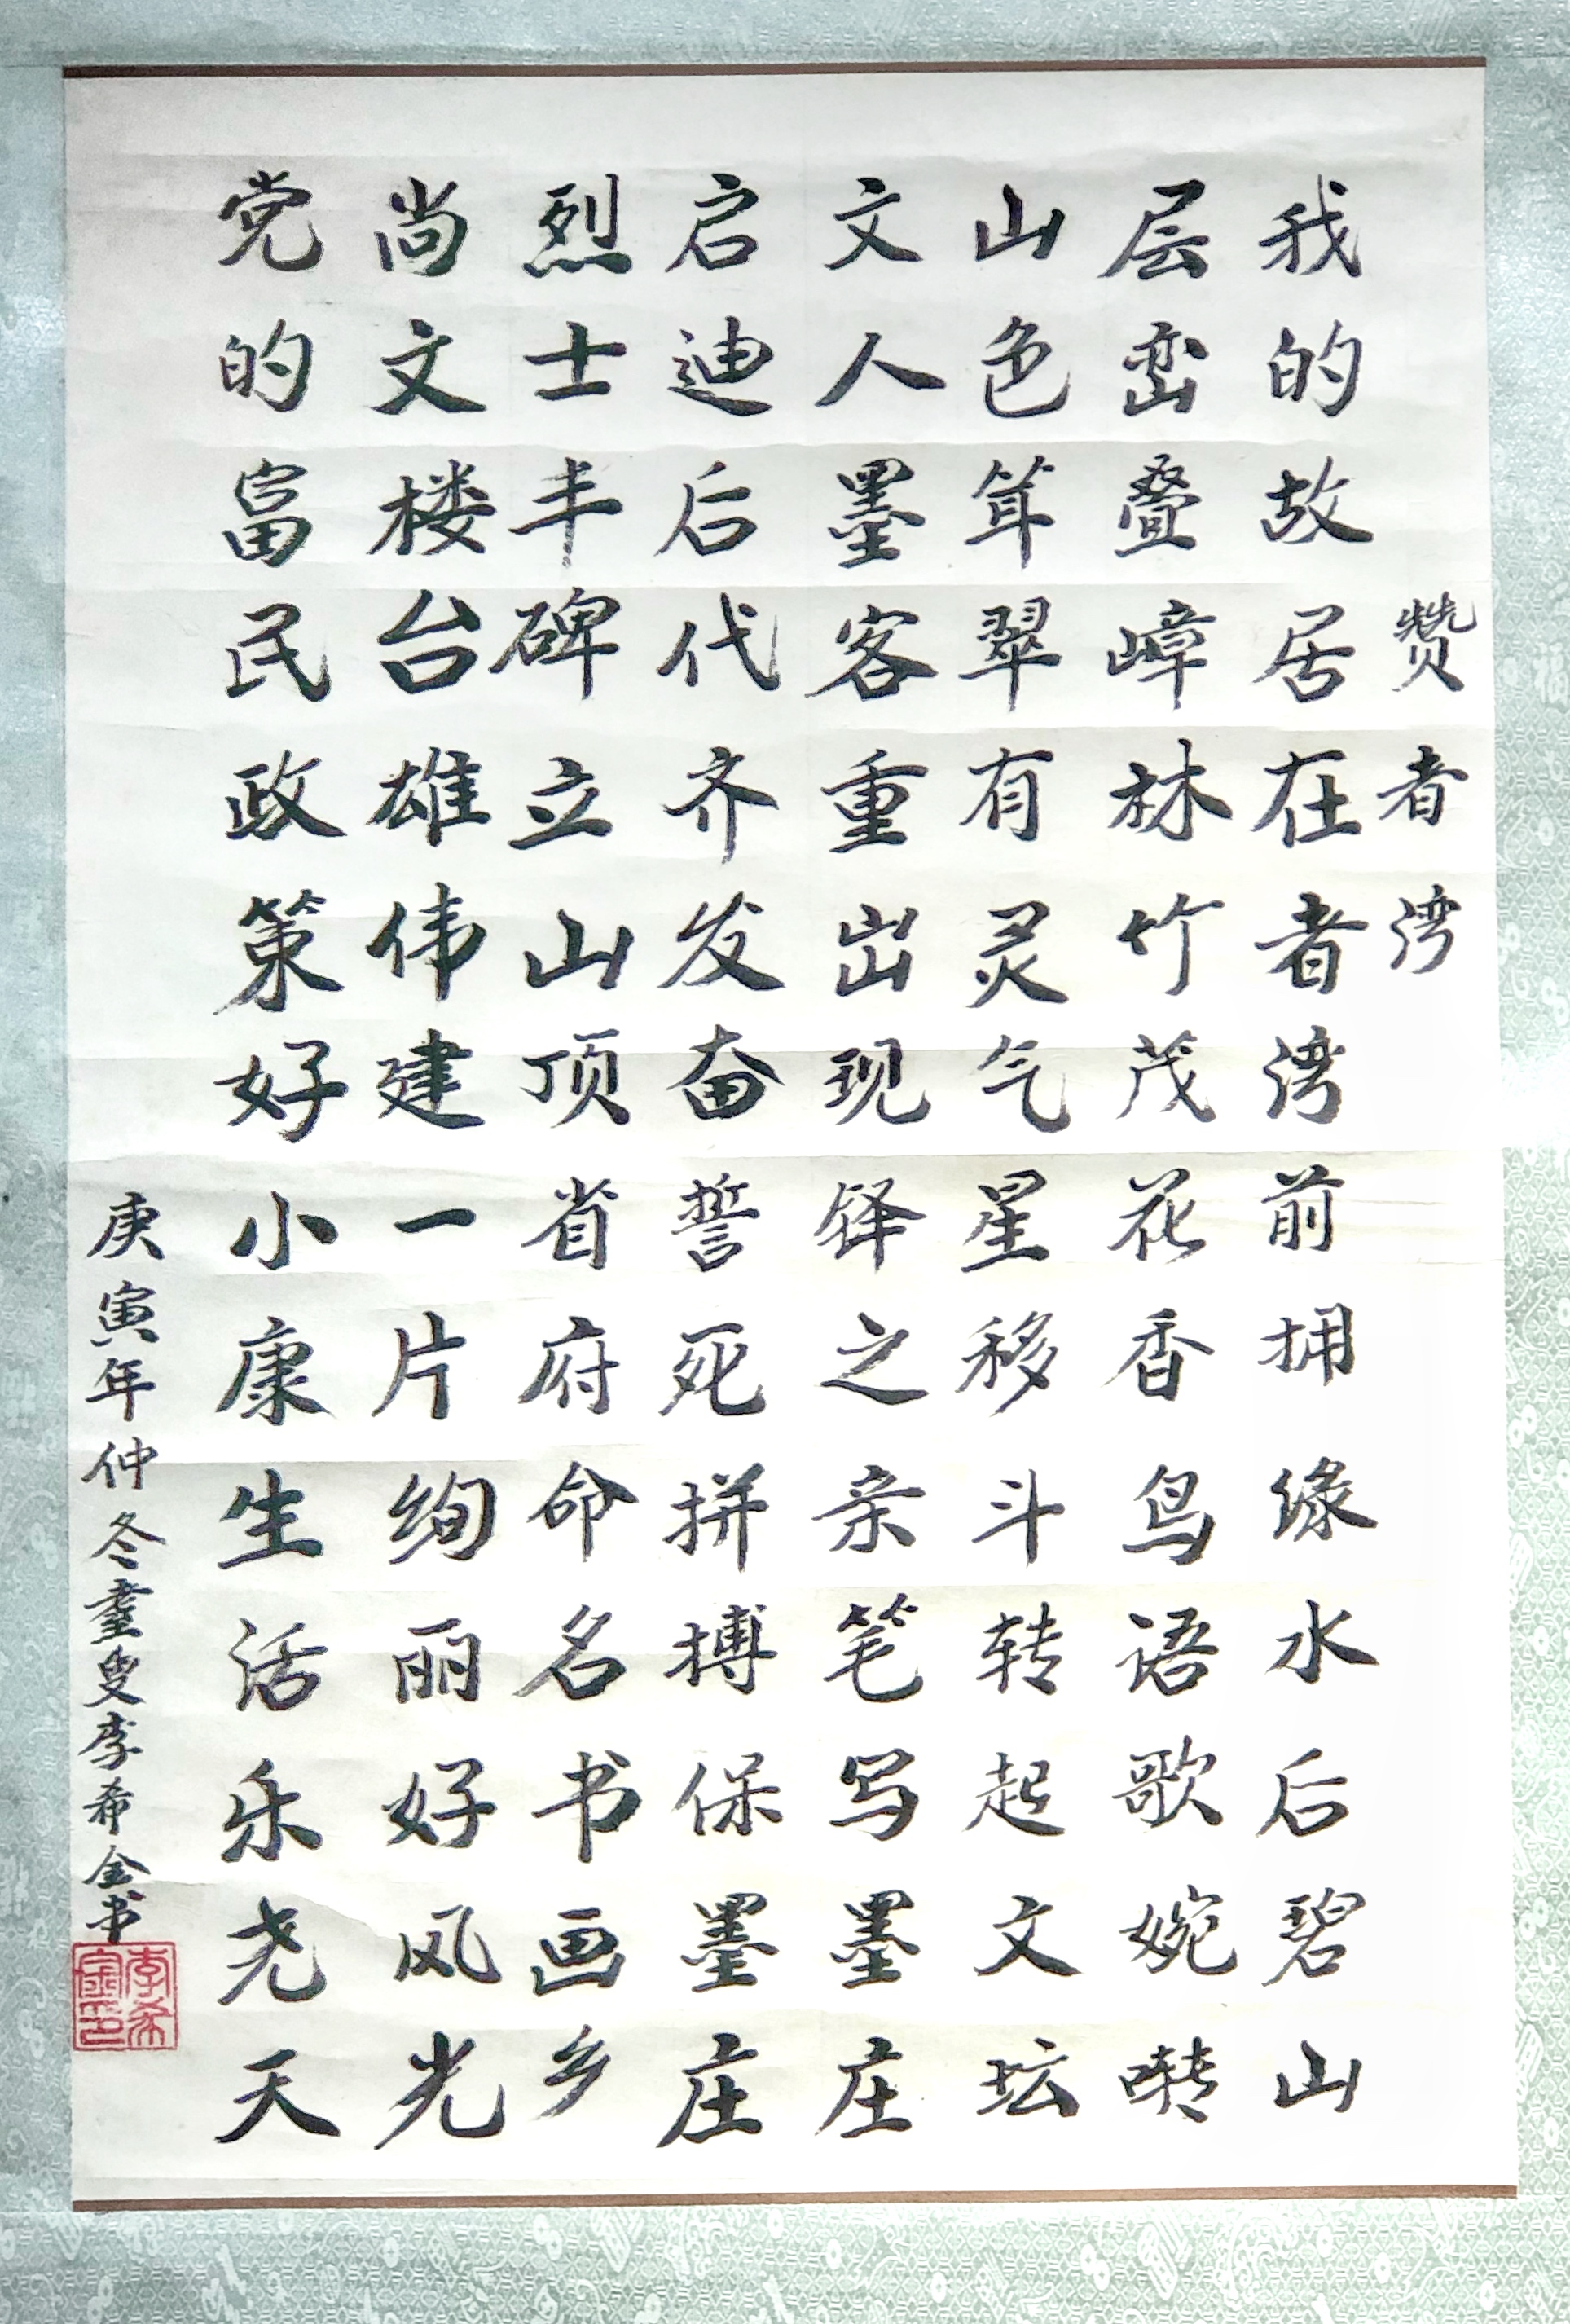 赞者湾
我的故居在者湾前拥绿水后碧山
层峦叠嶂林竹茂花香鸟语歌婉啭
山色耸翠有灵气星移斗转起文坛
文人墨客重出现铎之亲笔写墨庄
启迪后代齐发奋誓死拼搏保墨庄
烈士丰碑立山顶省府命名书画乡
尚文楼台雄伟建一片绚丽好风光
党的富民政策好小康生活乐尧天
庚寅年仲冬耋叟李希金书